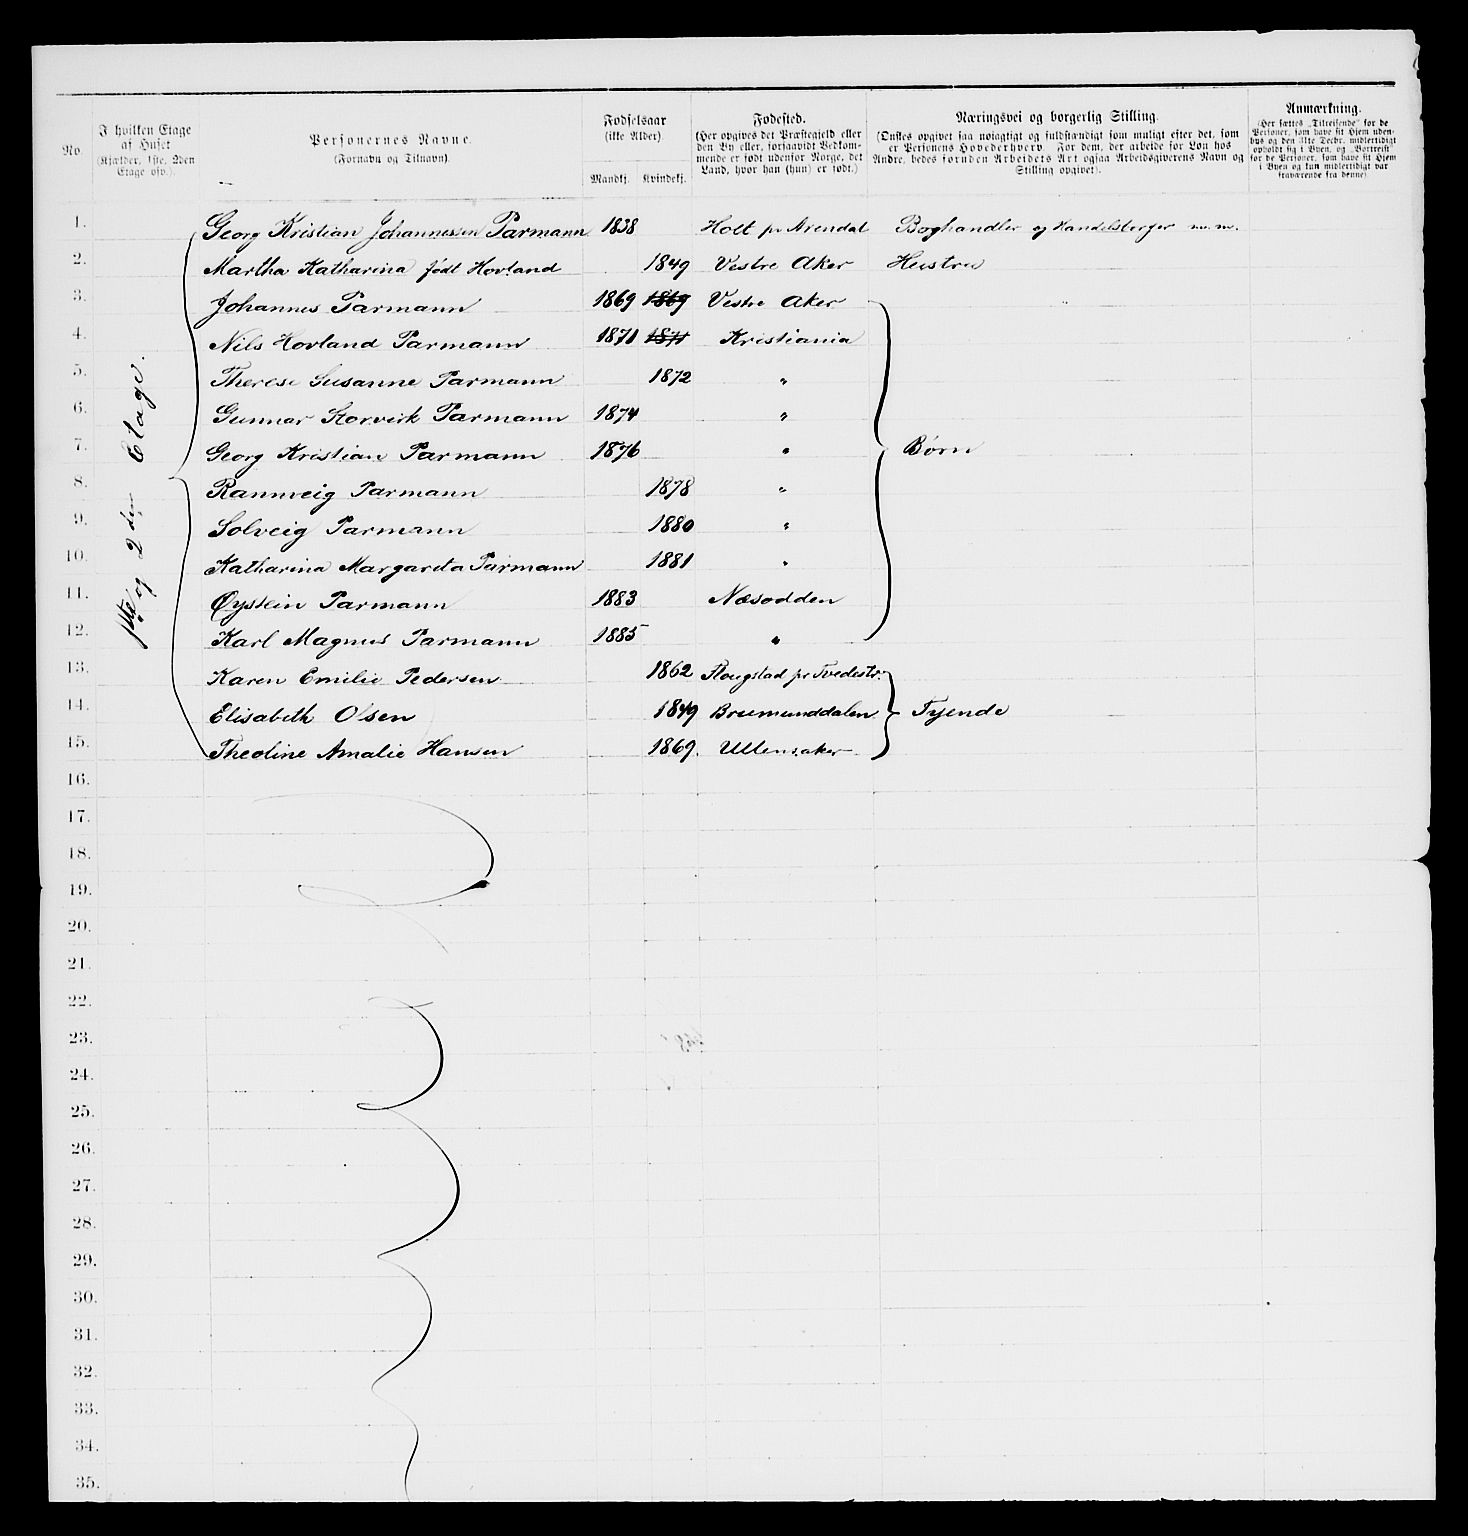 No.
I hvilken Etage af Huset
(Kjælder, 1ste, 2den Etage osv.).
Personernes Navne.
(Fornavn og Tilnavn).
Fødselsaar
(ikke Alder).
Mandkj. Kvindekj.
Fødested.
(Her opgives det Præstegjeld eller
den By eller, forsaavidt Vedkom-
mende er født udenfor Norge, det
Land, hvor han (hun) er født.)
Næringsvei og borgerlig Stilling.
(Ønskes opgivet saa nøiagtigt og fuldstændigt som muligt efter det, som
er Personens Hovederhverv. For dem, der arbeide for Løn hos
Andre, bedes foruden Arbeidets Art ogsaa Arbeidsgiverens Navn og
Stilling opgivet).
Anmærkning.
(Her sættes „Tilreisende“ for de
Personer, som have sit Hjem uden-
bys og den 31te Decbr. midlertidigt
opholdt sig i Byen, og „Bortreist“
for de Personer, som have sit Hjem
i Byen og kun midlertidigt var
fraværende fra denne)
1ste og 2den Etage.
1. Georg Kristian Johannessen Parmann 1838 Holt pr Arendal Boghandler og Handelsborger m.m.
2. Martha Katharina født Hovland 1849 Vestre Aker Hustru
3. Johannes Parmann 1869 1869 Vestre Aker
4. Nils Hovland Parmann 1871 1871 Kristiania
5. Therese Susanne Parmann 1872 "
6. Gunnar Parmann 1874 "
7. Georg Kristian Parmann 1876 " Børn
8. Rannveig Parmann 1878 "
9. Solveig Parmann 1880 "
10. Katharina Margareta Parmann 1881 "
11. Øystein Parmann 1883 Næsodden
12. Karl Magnus Parmann 1885 "
13. Karen Emilie Pedersen 1862 pr Tvedestr.
14. Elisabeth Olsen 1849 Brumunddalen Tyende
15. Theoline Amalie Hansen 1869. Ullensaker
16.
17.
18.
19.
20.
21.
22.
23.
24.
25.
26.
27.
28.
29.
30.
31.
32.
33.
34.
35.